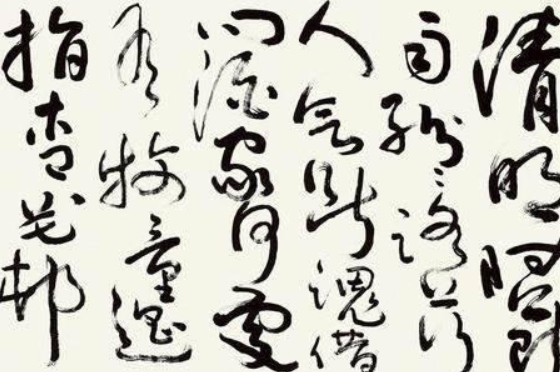 清明時節
雨紛紛路上行
人欲斷魂借
問酒家何處
有牧童遙
指杏花邨